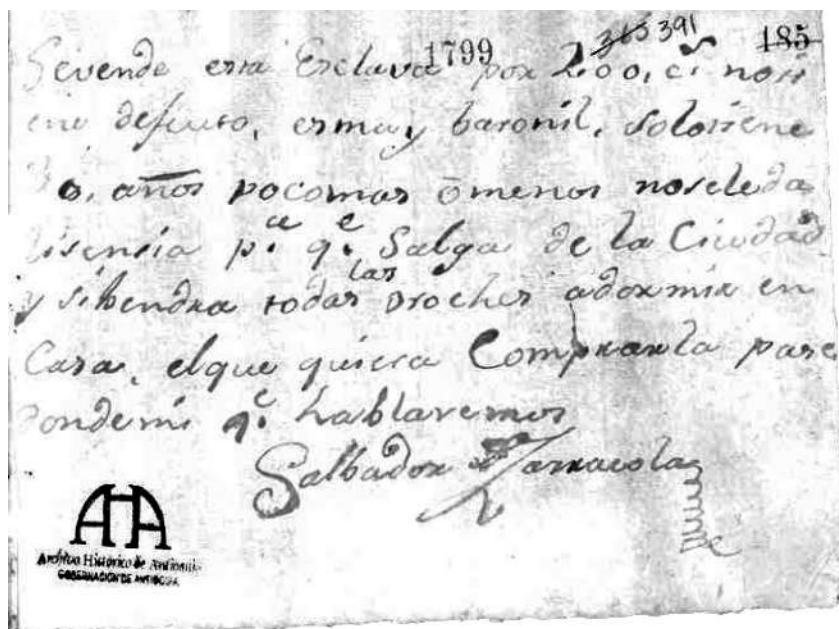 365 391
1799 185
Sevende esta Esclava por 200, c.s noti
ene defeuto, esmuy baronil, solotiene
30, años pocomas ō menos noseleda
lisensia p.a q.e Salga de la Ciudad
y sibendra todas las nroches adormir en
Casa, elque quiera Comprarla pase
dondemi q.e hablaremos
Salbador
AHA
Archivo Histórico de Antioquia
GOBERNACIÓN DE ANTIOQUIA